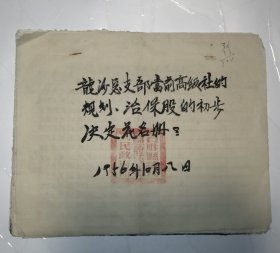 龍汐总支部當前高級社的
规划、治保股的初步
决定花名册:
1956年10月八日